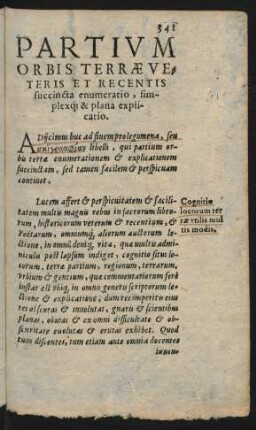 341
PARTIVM
ORBIS TERRÆ VE-
TERIS ET RECENTIS
succincta enumeratio, sim-
plexq́; & plana expli-
catio.
ADijcimus huc ad finem prolegomena, seu
libelli, qui partium or-
bis terræ enumerationem & explicationem
succinctam, sed tamen facilem & perspicuam
continet.
Lucem affert & perspicuitatem & facili-
tatem multũ magnis rebus in sacrorum libro-
rum, historicorum veterum & recentium, &
Poëtarum, omniumq́; aliorum auctorum le-
ctione, in omni deniq́; vita, quæ multis admi-
niculis post lapsum indiget, cognitio situs lo-
corum, terræ partium, regionum, terrarum,
vrbium & gentium, quæ commentariorum ferè
instar est vbiq́; in omni genere scriptorum le-
ctione & explicatione, dum res imperito eius
rei obscuras & inuolutas, gnaris & scientibus
planas, obuias & ex omni difficultate & ob-
scuritate euolutas & erutas exhibet. Quod
tum discentes, tum etiam ante omnia docentes
Cognitio
locorum ter
ræ vtilis mul
tis modis.